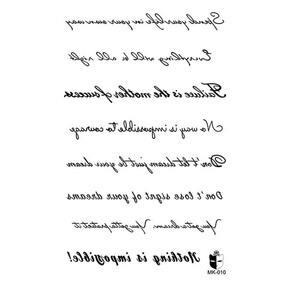 Spend your life in your own way
Everything will be all right
Failure is the mother of success
No way is impossible to courage
Don't let dream just be your dream
Don't lose signt of your dreams
You got a dream. You gotta protect it
Nothing is impossible!
MK-010